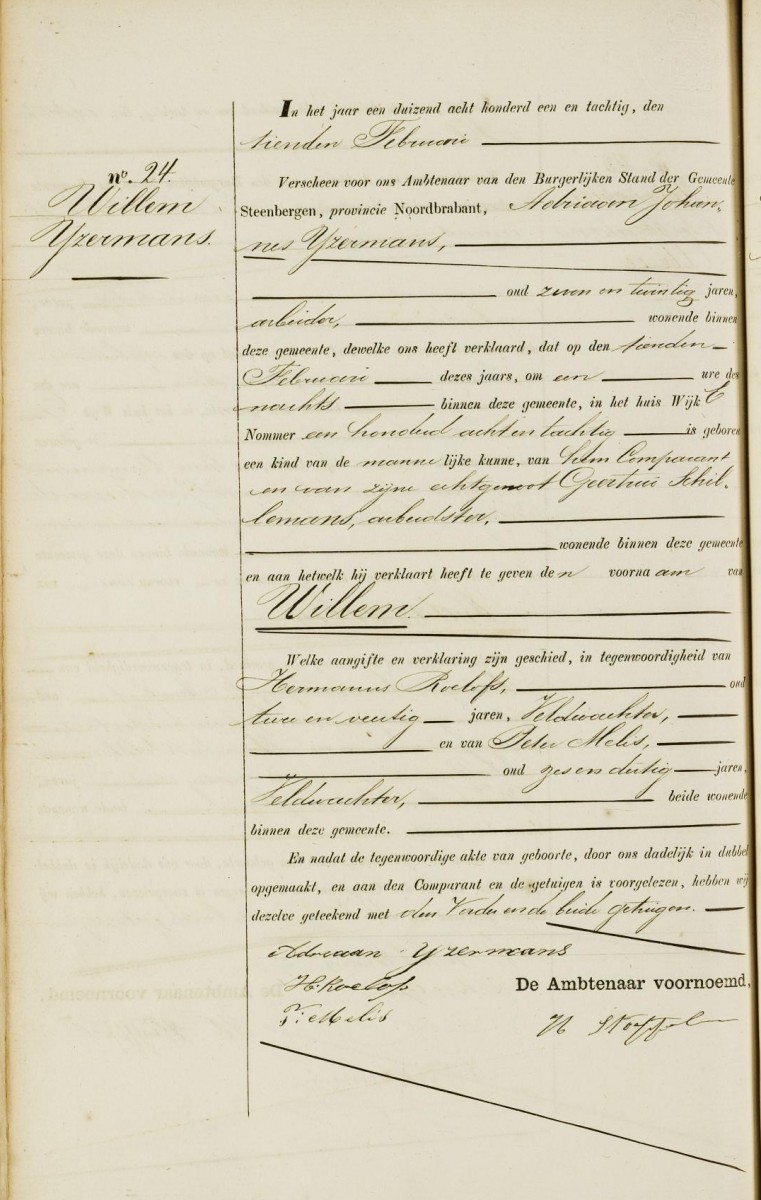 nº. 24.
Willem
Yzermans.
In het jaar een duizend acht honderd een en tachtig, den
tienden Februari
Verscheen voor ons Ambtenaar van den Burgerlijken Stand der Gemeente
Steenbergen, provincie Noordbrabant, Adriaan Johan-
nes Yzermans,
oud zeven en twintig jaren,
arbeider, wonende binnen
deze gemeente, dewelke ons heeft verklaard, dat op den tienden
Februari dezes jaars, om een ure des
nachts binnen deze gemeente, in het huis Wijk E
Nommer een honderd acht en tachtig is geboren
een kind van de mannelijke kunne, van hem Comparant
en van zijne echtgenoot Geertrui Schil-
lemans, arbeidster,
wonende binnen deze gemeente
en aan hetwelk hij verklaart heeft te geven den voornaam van
Willem.
Welke aangifte en verklaring zijn geschied, in tegenwoordigheid van
Hermanus Roelofs, oud
twee en veertig jaren, Veldwachter,
en van Peter Melis,
oud zes en dertig jaren,
Veldwachter, beide wonende
binnen deze gemeente.
En nadat de tegenwoordige akte van geboorte, door ons dadelijk in dubbel
opgemaakt, en aan den Comparant en de getuigen is voorgelezen, hebben wij
dezelve geteekend met den Vader en de beide getuigen.
Adriaan Yzermans
H. Roelofs De Ambtenaar voornoemd,
P. Melis